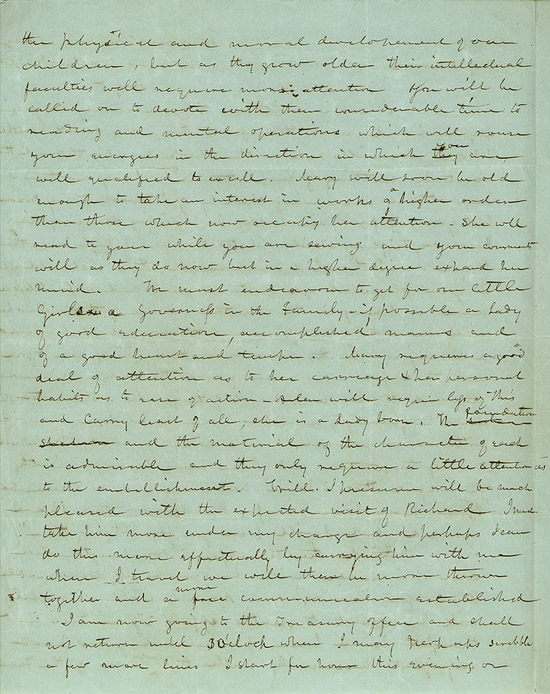 the physical and moral developement of our
children, but as they grow older their intellectual
faculties will require more attention You will be
called on to devote with them considerable time to
reading and mental operations which will rouse
your energies in the direction in which you are
well qualified to excell. Mary will soon be old
enough to take an interest in works of a higher order
than those which now occupy her attention - She will
read to you while you are sewing and your comments
will as they do now but in a higher degree expand her
mind. We must endeavour to get for our little
Girls a Governess in the Family - if possible a Lady
of good education, accomplished manners and
of a good heart and temper. Mary requires a good
deal of attention as to her carriage & her personal
habits as to ease of action - will require less of this
and Carry least of all, she is a Lady born. The foundation
and the material of the character of each
is admirable and they only require a little attention as
to the embellishment. Will. I presume will be much
pleased with the expected visit of Richard I must
take him more under my charge and perhaps I can
do this more effectually by carrying him with me
when I travel we will then be more thrown
together and a more free communication established
I am now going to the Treasury office and shall
not return until 3 O'clock when I may perhaps scribble
a few more lines I start for home this evening or